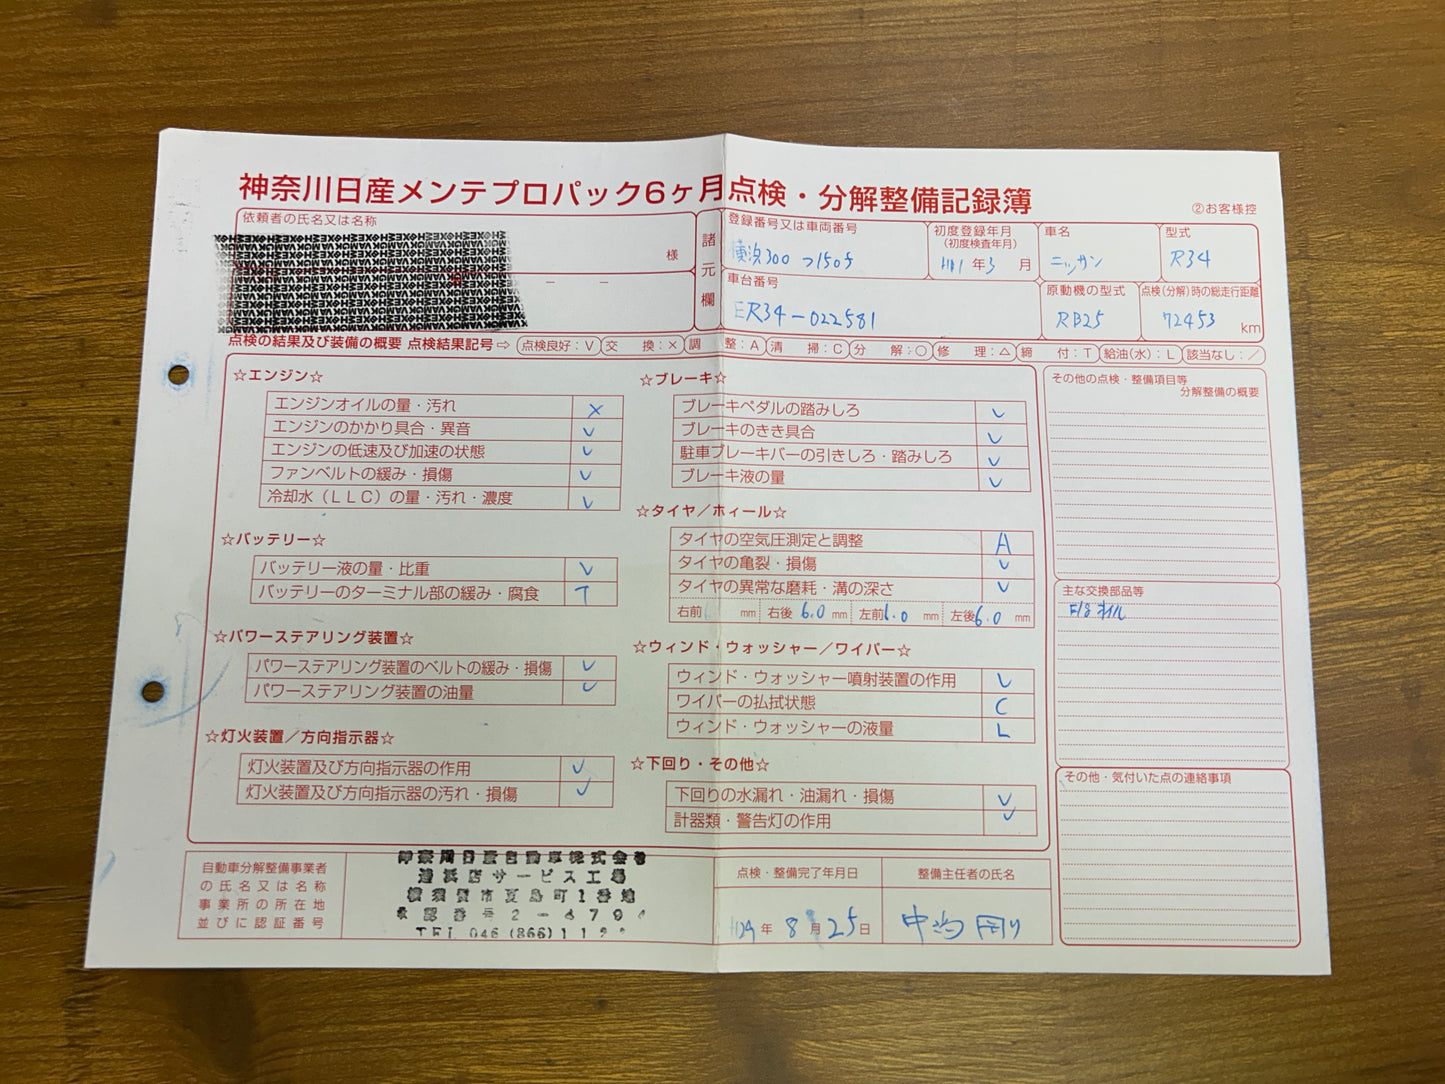 神奈川日産メンテプロパック6ヶ月点検・分解整備記録簿
②お客様控
依頼者の氏名又は名称
様
諸元欄
登録番号又は車両番号
横浜300
初度登録年月
(初度検査年月)
H11年3月
車名
ニッサン
型式
R34
車台番号
ER34-022581
原動機の型式
RB25
点検(分解)時の総走行距離
72453 km
点検の結果及び装備の概要 点検結果記号⇨ 点検良好:V 交換:× 調整:A 清掃:C 分解:○ 修理:△ 締付:T 給油(水):L 該当なし:／
☆エンジン☆
エンジンオイルの量・汚れ ×
エンジンのかかり具合・異音 V
エンジンの低速及び加速の状態 V
ファンベルトの緩み・損傷 V
冷却水(LLC)の量・汚れ・濃度 V
☆バッテリー☆
バッテリー液の量・比重 V
バッテリーのターミナル部の緩み・腐食 T
☆パワーステアリング装置☆
パワーステアリング装置のベルトの緩み・損傷 V
パワーステアリング装置の油量 V
☆灯火装置／方向指示器☆
灯火装置及び方向指示器の作用 V
灯火装置及び方向指示器の汚れ・損傷 V
☆ブレーキ☆
ブレーキペダルの踏みしろ V
ブレーキのきき具合 V
駐車ブレーキバーの引きしろ・踏みしろ V
ブレーキ液の量 V
☆タイヤ／ホィール☆
タイヤの空気圧測定と調整 A
タイヤの亀裂・損傷 V
タイヤの異常な磨耗・溝の深さ V
右前 mm 右後 6.0 mm 左前 6.0 mm 左後 6.0 mm
☆ウィンド・ウォッシャー／ワイパー☆
ウィンド・ウォッシャー噴射装置の作用 V
ワイパーの払拭状態 C
ウィンド・ウォッシャーの液量 L
☆下回り・その他☆
下回りの水漏れ・油漏れ・損傷 V
計器類・警告灯の作用 V
その他の点検・整備項目等
分解整備の概要
主な交換部品等
オイル
その他・気付いた点の連絡事項
自動車分解整備事業者
の氏名又は名称
事業所の所在地
並びに認証番号
神奈川日産自動車株式会社
追浜店サービス工場
横須賀市夏島町1番地
認番号2-4794
TEL 046(866)
点検・整備完了年月日
H29年8月25日
整備主任者の氏名
中